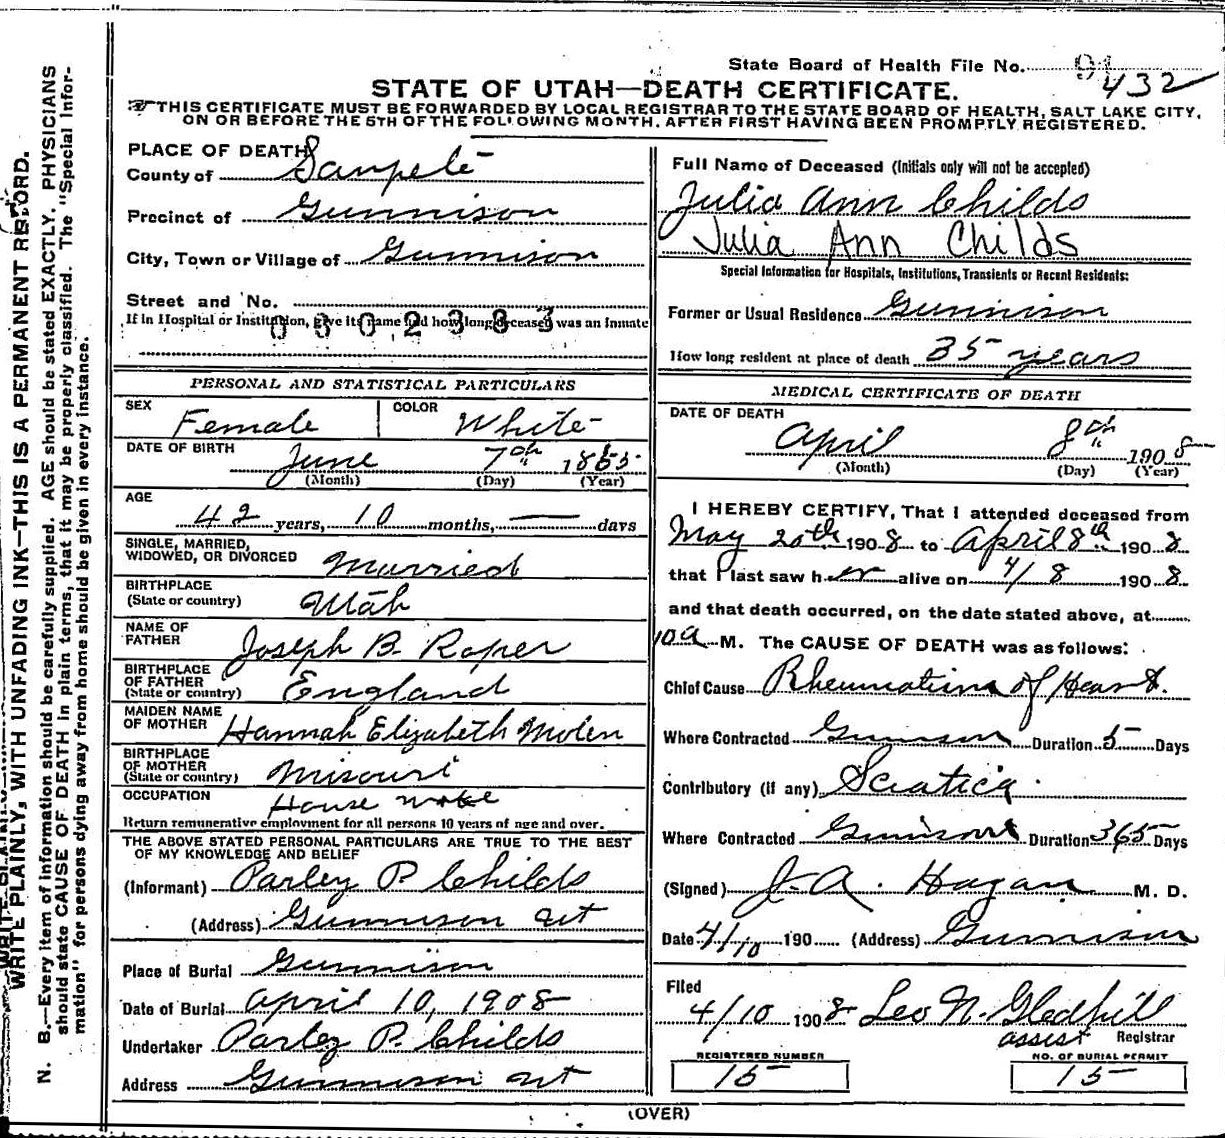 State Board of Health File No. 91 432
STATE OF UTAH—DEATH CERTIFICATE.
THIS CERTIFICATE MUST BE FORWARDED BY LOCAL REGISTRAR TO THE STATE BOARD OF HEALTH, SALT LAKE CITY,
ON OR BEFORE THE 5TH OF THE FOLLOWING MONTH, AFTER FIRST HAVING BEEN PROMPTLY REGISTERED.
PLACE OF DEATH
County of Sanpete
Precinct of Gunnison
City, Town or Village of Gunnison
Street and No.
If in Hospital or Institution, give its name and how long deceased was an Inmate
0302383
PERSONAL AND STATISTICAL PARTICULARS
SEX Female COLOR White
DATE OF BIRTH June 7th 1865
(Month) (Day) (Year)
AGE
42 years, 10 months, — days
SINGLE, MARRIED,
WIDOWED, OR DIVORCED Married
BIRTHPLACE
(State or country) Utah
NAME OF
FATHER Joseph B. Roper
BIRTHPLACE
OF FATHER
(State or country) England
MAIDEN NAME
OF MOTHER Hannah Elizabeth Molen
BIRTHPLACE
OF MOTHER
(State or country) Misouri
OCCUPATION House
Return remunerative employment for all persons 10 years of age and over.
THE ABOVE STATED PERSONAL PARTICULARS ARE TRUE TO THE BEST
OF MY KNOWLEDGE AND BELIEF
(Informant) Parley P. Childs
(Address) Gunnison Ut
Place of Burial Gunnison
Date of Burial April 10, 1908
Undertaker Parley P. Childs
Address Gunnison Ut
Full Name of Deceased (Initials only will not be accepted)
Julia Ann Childs
Julia Ann Childs
Special Information for Hospitals, Institutions, Transients or Recent Residents:
Former or Usual Residence Gunnison
How long resident at place of death 35 years
MEDICAL CERTIFICATE OF DEATH
DATE OF DEATH
April 8th 1908
(Month) (Day) (Year)
I HEREBY CERTIFY, That I attended deceased from
May 20th 1908 to April 8th 1908
that I last saw her alive on 4/8 1908
and that death occurred, on the date stated above, at
10 a M. The CAUSE OF DEATH was as follows:
Chief Cause Rheumatism of Heart.
Where Contracted Gunnison Duration 5 Days
Contributory (if any) Sciatica
Where Contracted Gunnison Duration 365 Days
(Signed) J. A. Hagan M. D.
Date 4/10 190 (Address) Gunnison
Filed
4/10 1908 Leo N. Gledhill
assist Registrar
REGISTERED NUMBER
15
NO. OF BURIAL PERMIT
15
(OVER)
WRITE PLAINLY, WITH UNFADING INK—THIS IS A PERMANENT RECORD.
N. B.—Every item of information should be carefully supplied. AGE should be stated EXACTLY. PHYSICIANS
should state CAUSE OF DEATH in plain terms, that it may be properly classified. The "Special Infor-
mation" for persons dying away from home should be given in every instance.